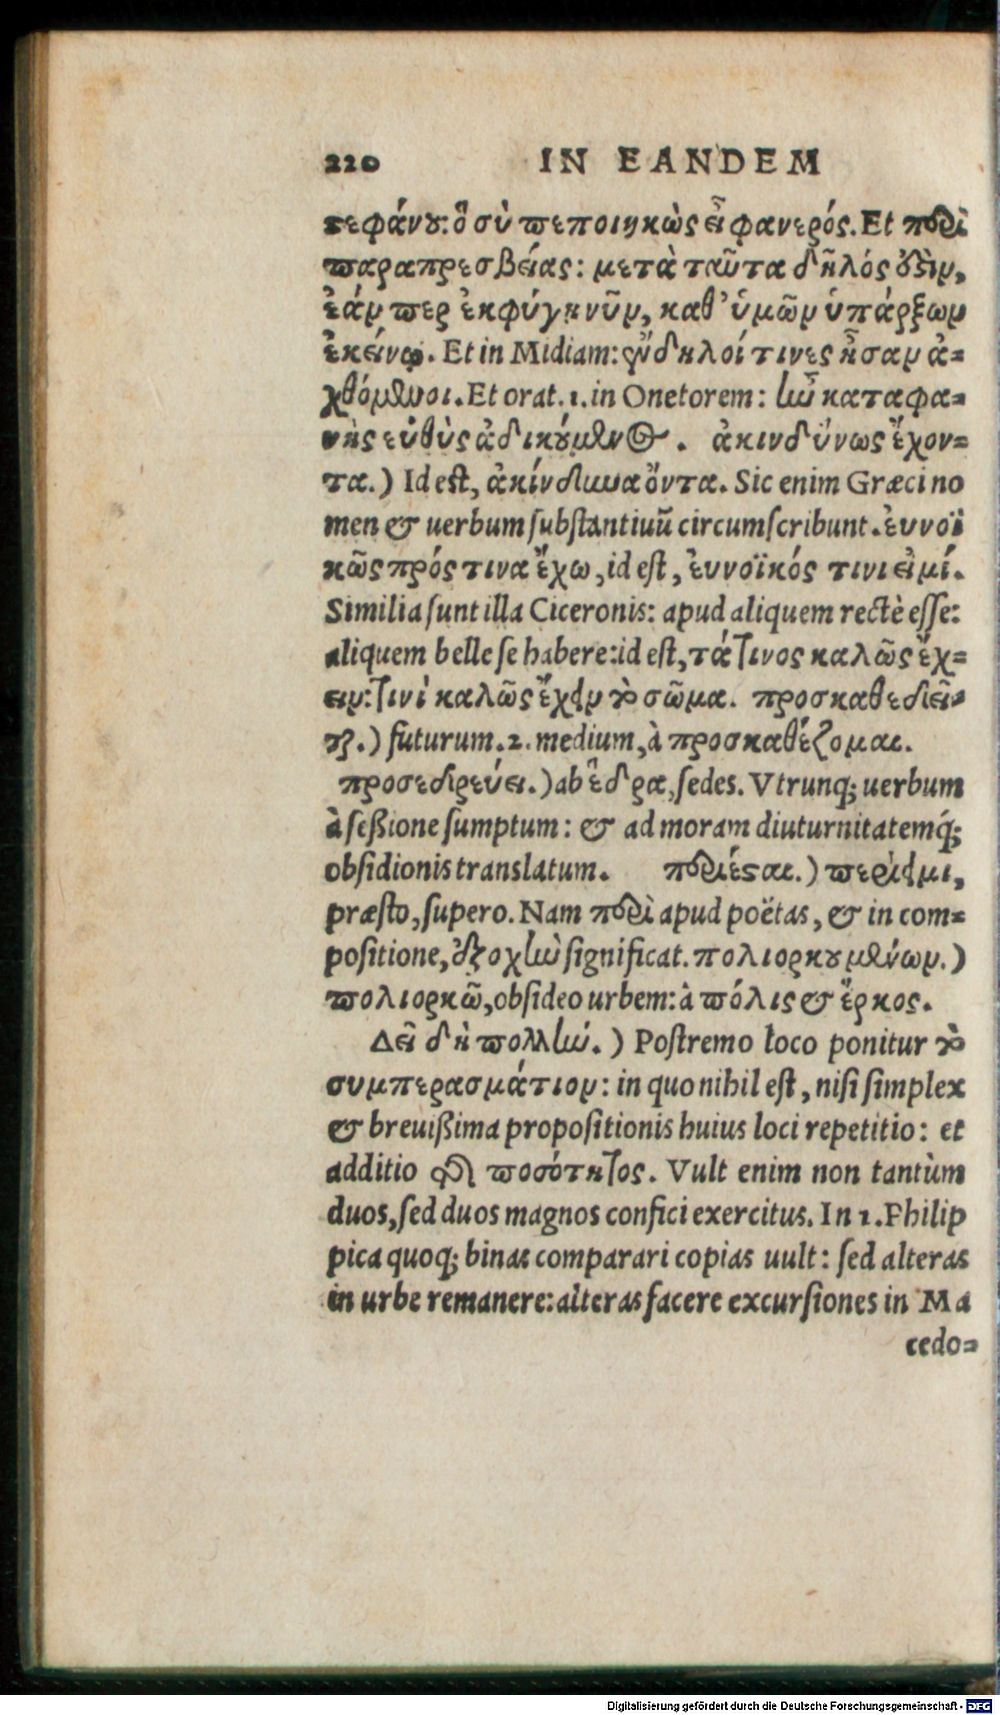 220 IN EANDEM
ςεφάνου: ὃ σὺ πεποιηκὼς εἶ φανερός. Et περὶ
παραπρεσβείας: μετὰ ταῦτα δῆλός ὅδιν,
ἐάν περ ἐκφύγῃ νῦν, καθ' ὑμῶν ὑπάρξων
ἐκείνῳ. Et in Midiam: δῆλοί τινες ἦσαν ἀ-
χθόμενοι. Et orat. 1. in Onetorem: ἦν καταφα-
νὴς εὐθὺς ἀδικούμενος. ἀκινδύνως ἔχον-
τα.) Id est, ἀκίνδυνα ὄντα. Sic enim Græci no
men & uerbum substantiuū circumscribunt. ἐυνοϊ
κῶς πρός τινα ἔχω, id est, ἐυνοϊκός τινι εἰμί.
Similia sunt illa Ciceronis: apud aliquem rectè esse:
aliquem belle se habere: id est, τά τινος καλῶς ἔχ-
ειν: τινὶ καλῶς ἔχειν τὸ σῶμα. προσκαθεδιεῖ-
ται.) futurum. 2. medium, à προσκαθέζομαι.
προσεδρεύει.) ab ἕδρα, sedes. Vtrunq; uerbum
à seßione sumptum: & ad moram diuturnitatemq́;
obsidionis translatum. περιέςαι.) περίειμι,
præsto, supero. Nam περὶ apud poëtas, & in com-
positione, ἐξοχὴν significat. πολιορκουμένων.)
πολιορκῶ, obsideo urbem: à πόλις & ἕρκος.
Δεῖ δὴ πολλὴν.) Postremo loco ponitur τὸ
συμπερασμάτιον: in quo nihil est, nisi simplex
& breuißima propositionis huius loci repetitio: et
additio τῆς ποσότητος. Vult enim non tantùm
duos, sed duos magnos confici exercitus. In 1. Philip
pica quoq; binas comparari copias uult: sed alteras
in urbe remanere: alteras facere excursiones in Ma
cedo-
Digitalisierung gefördert durch die Deutsche Forschungsgemeinschaft - DFG